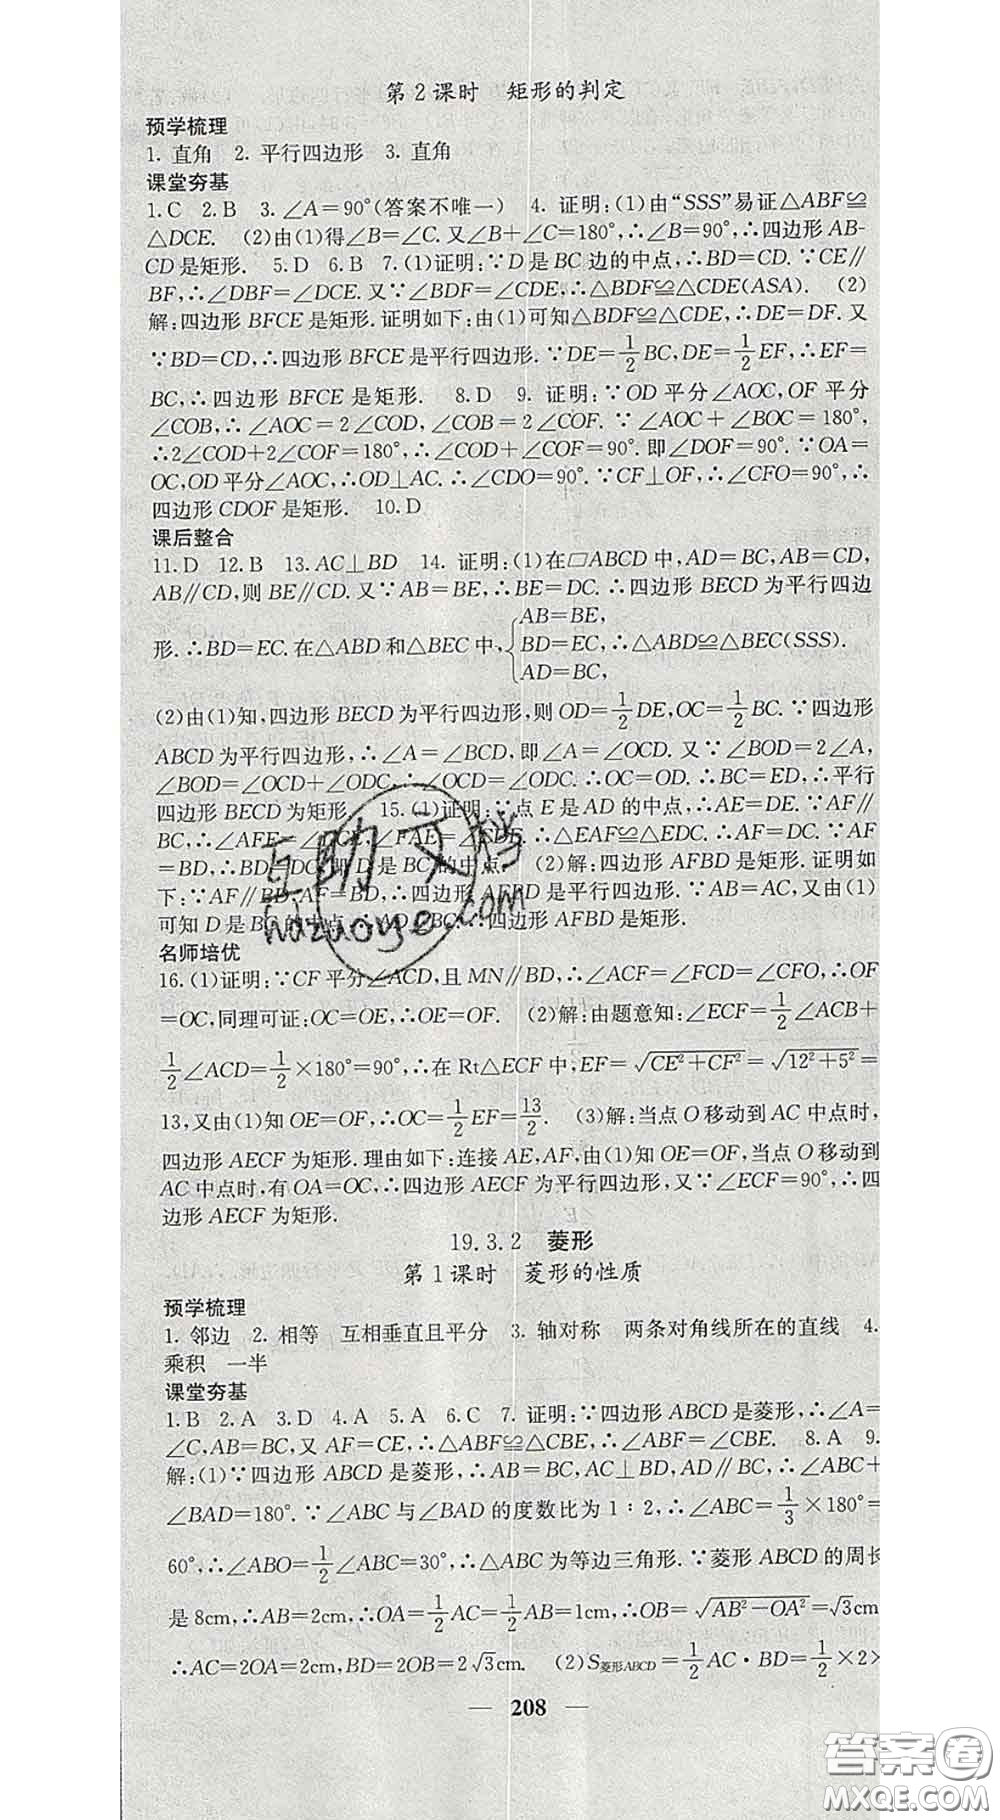 第2课时 矩形的判定
预学梳理
1. 直角 2. 平行四边形 3. 直角
课堂夯基
1.C 2.B 3.∠A=90°(答案不唯一) 4. 证明:(1)由“SSS”易证△ABF≌
△DCE. (2)由(1)得∠B=∠C. 又∠B+∠C=180°,∴∠B=90°,∴四边形AB-
CD是矩形. 5.D 6.B 7.(1)证明:∵D是BC边的中点,∴BD=CD.∵CE∥
BF,∴∠DBF=∠DCE.又∵∠BDF=∠CDE,∴△BDF≌△CDE(ASA). (2)
解:四边形BFCE是矩形.证明如下:由(1)可知△BDF≌△CDE,∴DE=DF.又
∵BD=CD,∴四边形BFCE是平行四边形.∵DE=1/2BC,DE=1/2EF,∴EF=
BC,∴四边形BFCE是矩形. 8.D 9. 证明:∵OD平分∠AOC,OF平分
∠COB,∴∠AOC=2∠COD,∠COB=2∠COF.∵∠AOC+∠BOC=180°,
∴2∠COD+2∠COF=180°,∴∠COD+∠COF=90°.即∠DOF=90°.∵OA=
OC,OD平分∠AOC,∴OD⊥AC.∴∠CDO=90°.∵CF⊥OF,∴∠CFO=90°,∴
四边形CDOF是矩形. 10.D
课后整合
11.D 12.B 13.AC⊥BD 14. 证明:(1)在□ABCD中,AD=BC,AB=CD,
AB∥CD,则BE∥CD.又∵AB=BE,∴BE=DC.∴四边形BECD为平行四边
形.∴BD=EC.在△ABD和△BEC中,{AB=BE, BD=EC, AD=BC, ∴△ABD≌△BEC(SSS).
(2)由(1)知,四边形BECD为平行四边形,则OD=1/2DE,OC=1/2BC.∵四边形
ABCD为平行四边形,∴∠A=∠BCD,即∠A=∠OCD.又∵∠BOD=2∠A,
∠BOD=∠OCD+∠ODC,∴∠OCD=∠ODC.∴OC=OD.∴BC=ED,∴平行
四边形BECD为矩形. 15.(1)证明:∵点E是AD的中点,∴AE=DE.∵AF∥
BC,∴∠AFE=∠DCE,∠FAE=∠CDE.∴△EAF≌△EDC.∴AF=DC.∵AF
=BD,∴BD=DC,即D是BC的中点. (2)解:四边形AFBD是矩形.证明如
下:∵AF∥BD,AF=BD,∴四边形AFBD是平行四边形.∵AB=AC,又由(1)
可知D是BC的中点,∴AD⊥BC.∴四边形AFBD是矩形.
名师培优
16.(1)证明:∵CF平分∠ACD,且MN∥BD,∴∠ACF=∠FCD=∠CFO,∴OF
=OC,同理可证:OC=OE,∴OE=OF. (2)解:由题意知:∠ECF=1/2∠ACB+
1/2∠ACD=1/2×180°=90°,∴在Rt△ECF中,EF=√(CE²+CF²)=√(12²+5²)=
13,又由(1)知OE=OF,∴OC=1/2EF=13/2. (3)解:当点O移动到AC中点时,
四边形AECF为矩形.理由如下:连接AE,AF,由(1)知OE=OF,当点O移动到
AC中点时,有OA=OC,∴四边形AECF为平行四边形,又∵∠ECF=90°,∴四
边形AECF为矩形.
19.3.2 菱形
第1课时 菱形的性质
预学梳理
1. 邻边 2. 相等 互相垂直且平分 3. 轴对称 两条对角线所在的直线 4.
乘积 一半
课堂夯基
1.B 2.A 3.D 4.A 5.A 6.C 7. 证明:∵四边形ABCD是菱形,∴∠A=
∠C,AB=BC,又AF=CE,∴△ABF≌△CBE,∴∠ABF=∠CBE. 8.A 9.
解:(1)∵四边形ABCD是菱形,∴AB=BC,AC⊥BD,AD∥BC,∴∠ABC+
∠BAD=180°.∵∠ABC与∠BAD的度数比为1∶2,∴∠ABC=1/3×180°=
60°,∴∠ABO=1/2∠ABC=30°,∴△ABC为等边三角形.∵菱形ABCD的周长
是8cm,∴AB=2cm,∴OA=1/2AC=1/2AB=1cm,∴OB=√(AB²-OA²)=√3cm
∴AC=2OA=2cm,BD=2OB=2√3cm. (2)S菱形ABCD=1/2AC·BD=1/2×2×
— 208 —
互助文档
hdzuoye.com
答案圈
MXQE.COM